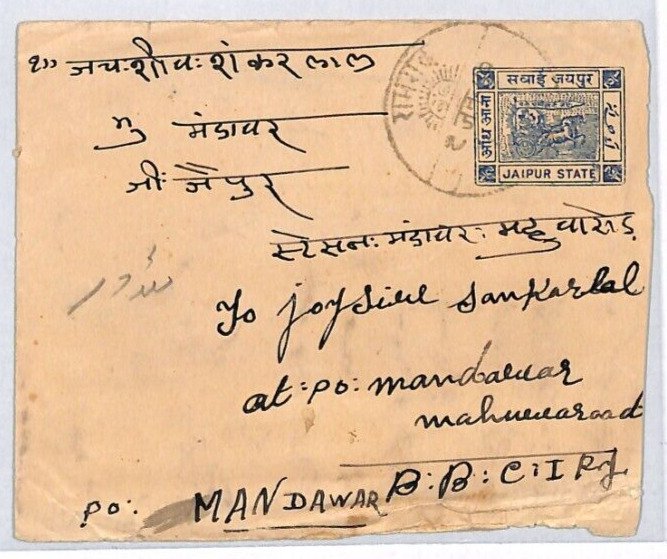 जयःशीवःशंकर लाल
मु मंडावर
जीः जैपुर
स्टेसनःमंडावरः महुवारोड़
सवाई जयपुर
आध आना
JAIPUR STATE
To joysive sankarlal
at:po: mandawar
mahuwaroad
B:B:C:I Ry
po: MANDAWAR